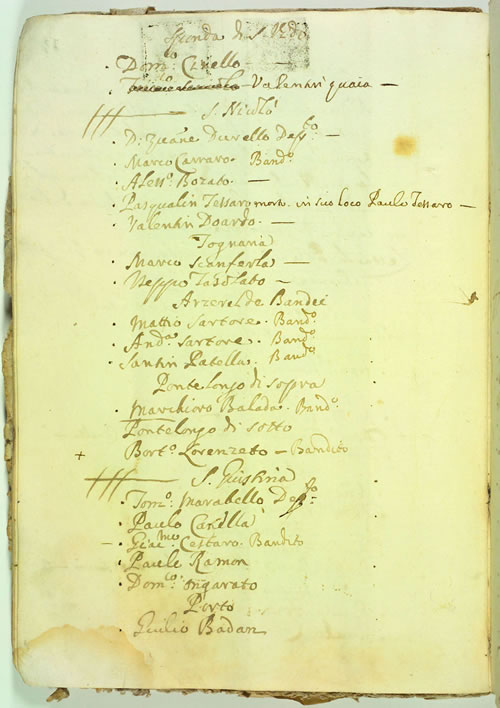 di S.
Dom.co Casello —
Valentin quaia —
S. Nicolò
D: Zuane Durello Dep.to —
Marco Carraro. Band.o
Aless.o Bozato. —
Pasqualin Tessaro morto. in suo loco Paulo Tessaro —
Valentin Doardo. —
Tognana
Marco Scanferla —
Beppo Tasolato —
Arzerel de Bandei
Mattio Sartore. Band.o
And.a Sartore. Band.o
Santin Patella. Band.o
Ponte longo di sopra
Marchioro Balada. Band.o
Ponte longo di sotto
+ Bort.o Lorenzato — Bandito
S. Giustina
Tom.o Marabello Dep.to
Paulo Canella
Giac.mo Cestaro. Bandito
Paule Ramon
Dom.co Ingarato
Porto
Giulio Badan